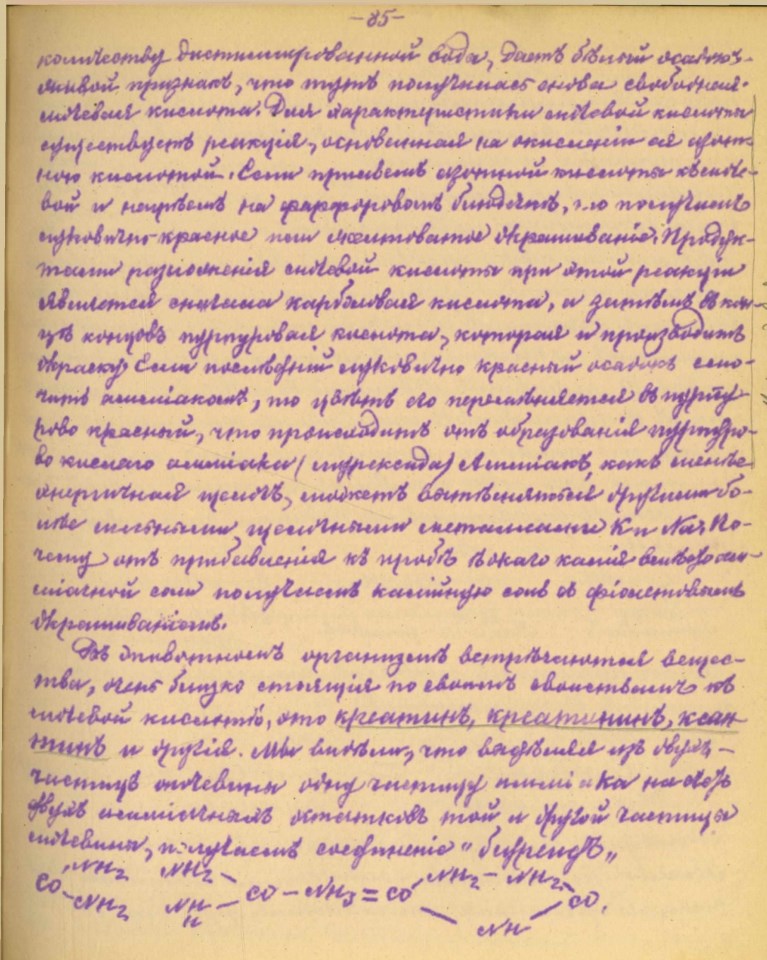 -85-
количеству дистиллированной воды, даетъ бѣлый осадокъ-
явный признакъ, что тутъ получилась снова свободная
мочевая кислота. Для характеристики мочевой кислоты
существуетъ реакцiя, основанная на окисленiи ея азот-
ною кислотой. Если прильемъ азотной кислоты къ моче-
вой и нагрѣемъ на фарфоровомъ блюдцѣ, то получимъ
луковично-красное или желтоватое окрашиванiе. Продук-
тами разложенiя мочевой кислоты при этой реакцiи
является сначала карболовая кислота, а затѣмъ въ кон-
цѣ концовъ пурпуровая кислота, которая и производитъ
окраску. Если послѣднiй луковично красный осадокъ смо-
чить аммiакомъ, то цвѣтъ его перемѣняется въ пурпу-
рово красный, что происходитъ отъ образованiя пурпуро-
во кислаго аммiака (мурексида) Аммiакъ, какъ менѣе
энергичная щелочь, можетъ вытѣсняться другими бо-
лѣе сильными щелочными металлами K и Na, по-
чему отъ прибавленiя къ пробѣ ѣдкаго калiя вмѣсто ам-
мiачной соли получаемъ калiйную соль съ фiолетовымъ
окрашиванiемъ.
Въ животномъ организмѣ встрѣчаются вещес-
тва, очень близко стоящiя по своимъ свойствамъ къ
мочевой кислотѣ, это креатинъ, креатининъ, ксан-
тинъ и другiя. Мы видѣли, что выдѣляя изъ двухъ-
частицъ мочевины одну частицу аммiака на счетъ
двухъ аммiачныхъ остатковъ той и другой частицы
мочевины, получаемъ соединенiе "биуреидъ"
CO NH2 NH2 NH2 NH H - CO - NH3 = CO NH2 - NH2 CO. NH